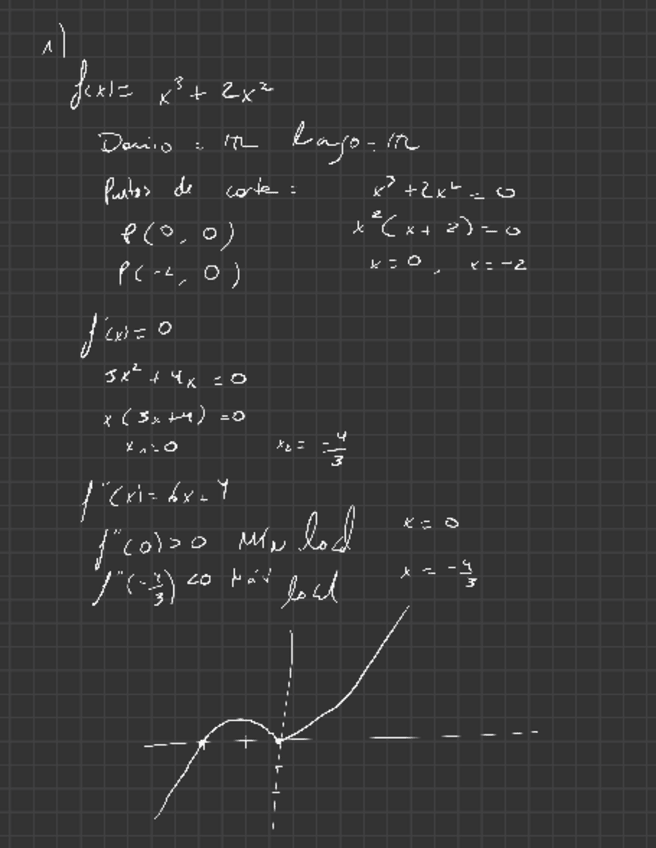 1)
f(x) = x³ + 2x²
Dominio = ℝ Rango = ℝ
Puntos de corte : x³ + 2x² = 0
P(0, 0) x²(x + 2) = 0
P(-2, 0) x = 0, x = -2
f'(x) = 0
3x² + 4x = 0
x(3x+4) = 0
x₁ = 0 x₂ = -4/3
f''(x) = 6x + 4
f''(0) > 0 Mín local x = 0
f''(-4/3) < 0 Máx local x = -4/3